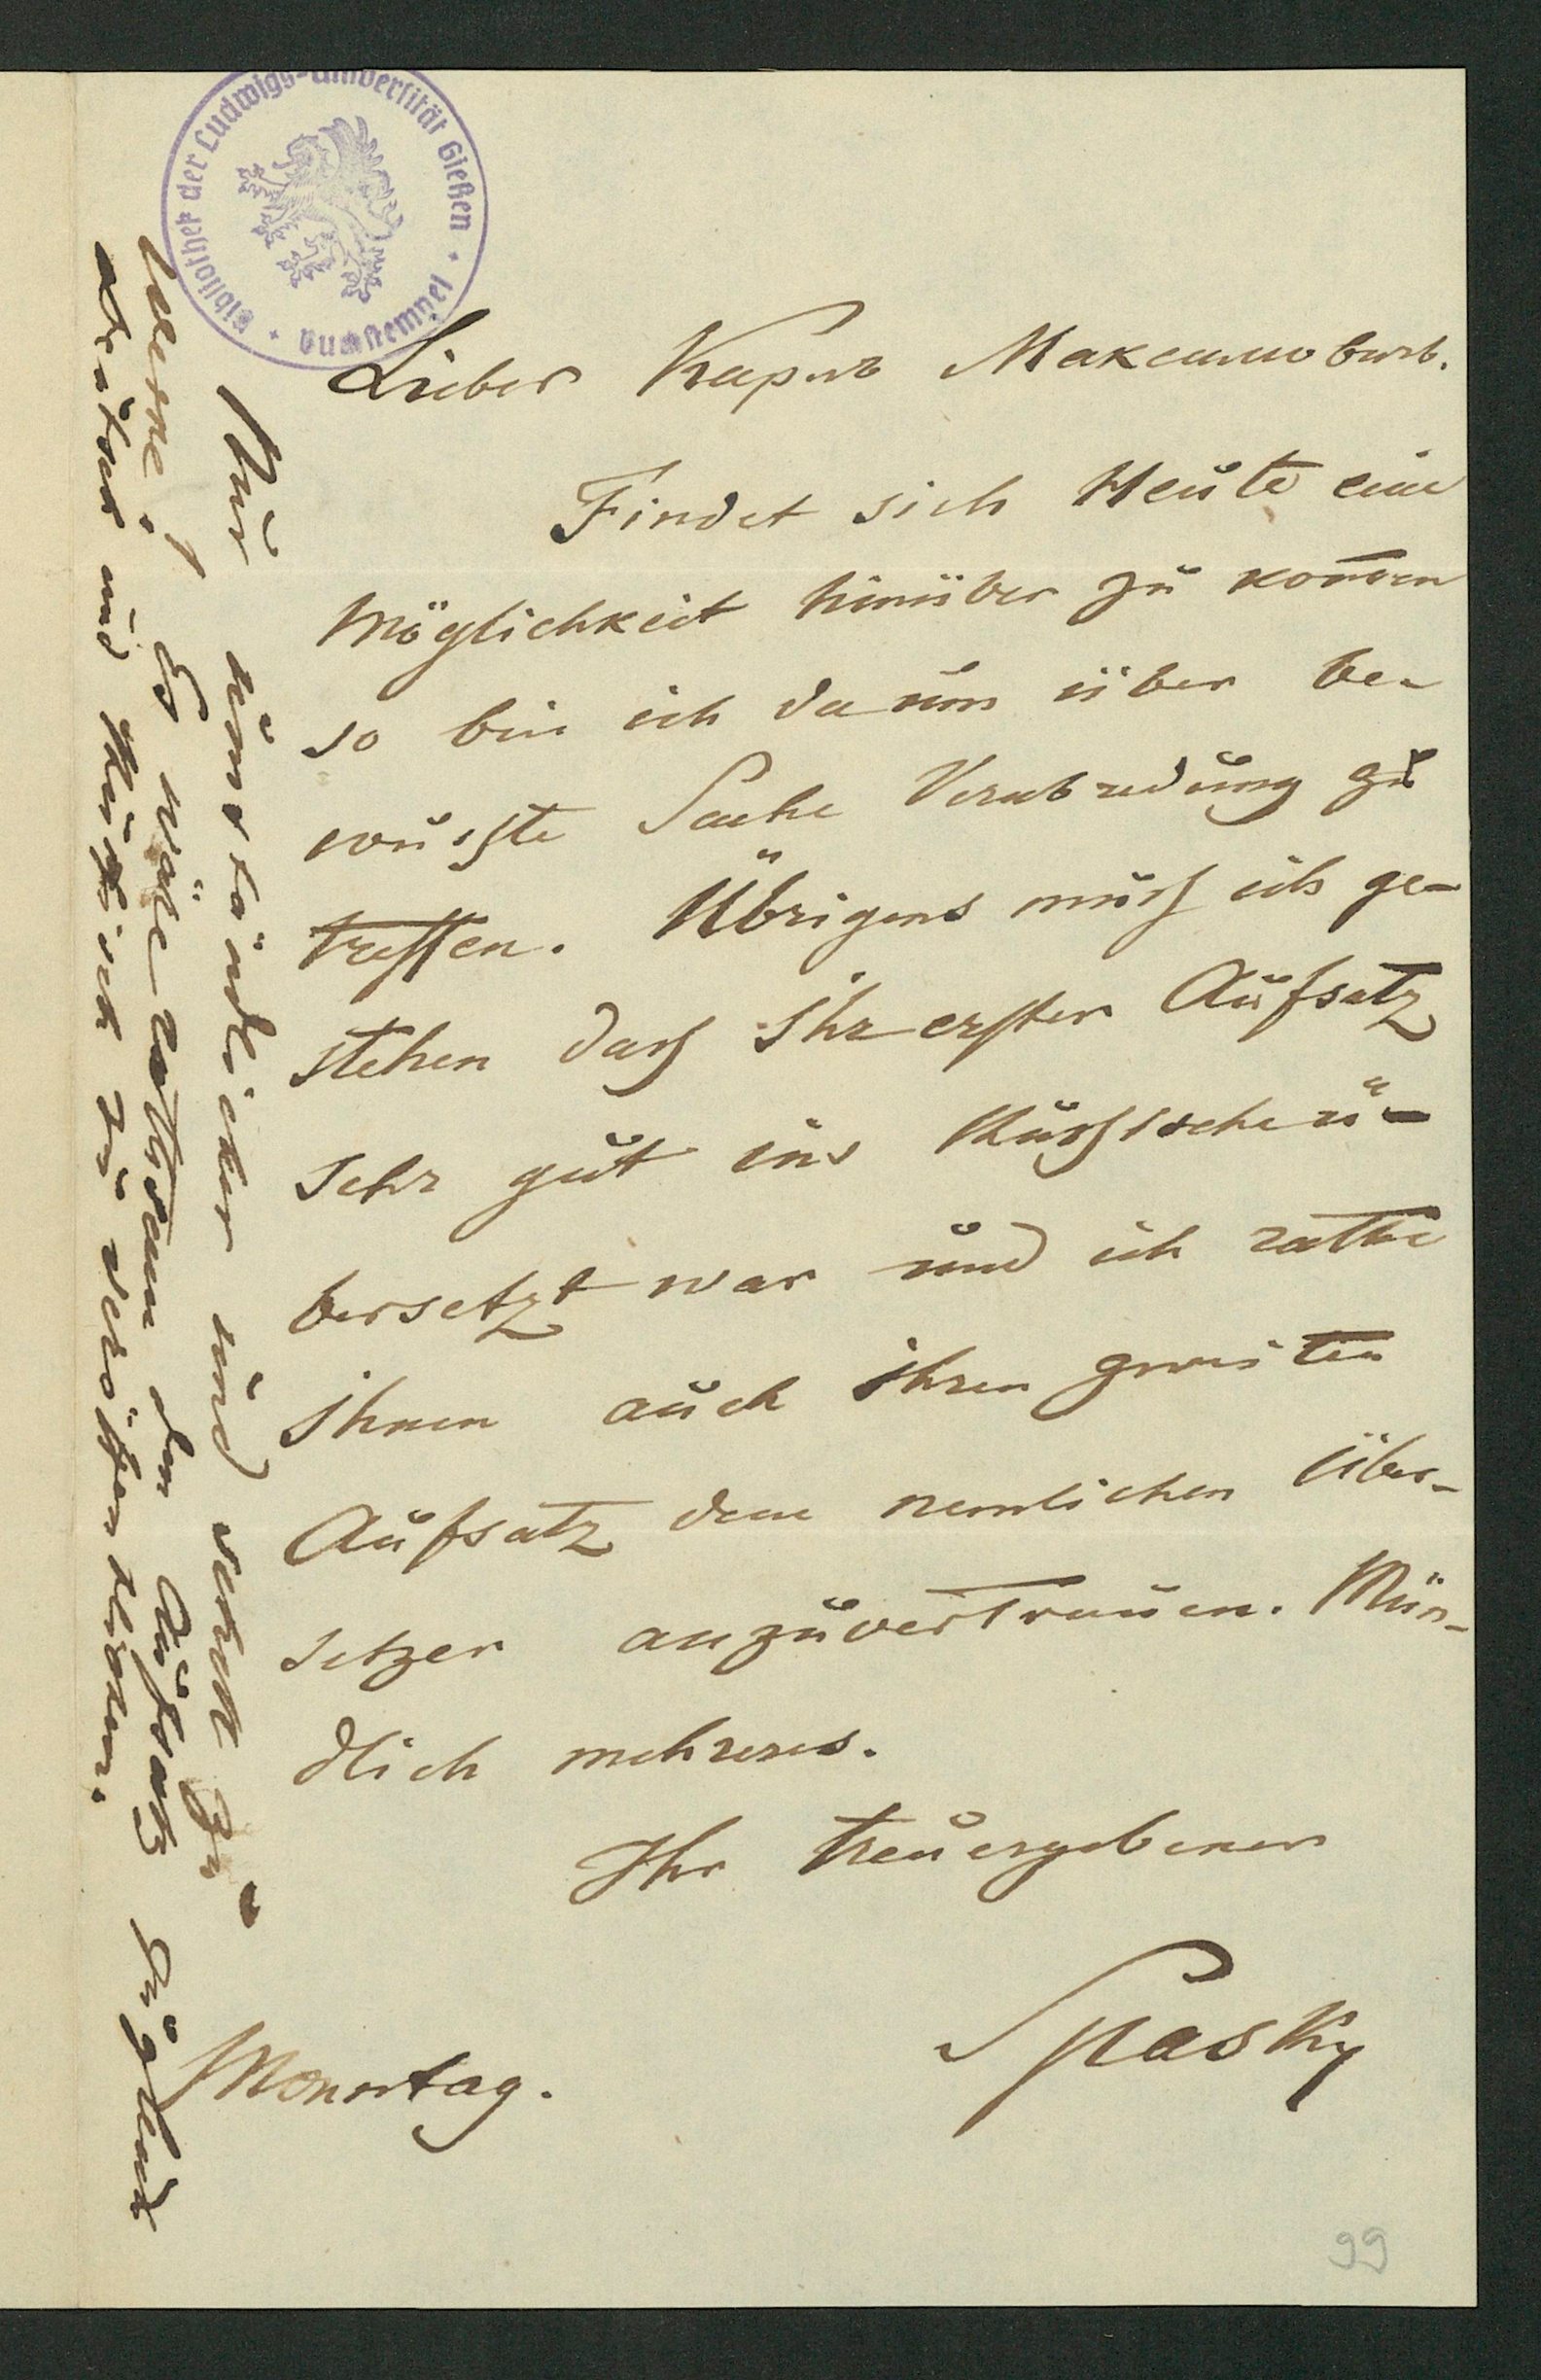 Bibliothek der Ludwigs-Universität Gießen · Buchstempel ·
Lieber Карлъ Максимовичъ.
Findet sich Heute eine
Möglichkeit hinüber zu kom̅en
so bin ich da um über be-
wusste Sache Verabredung zu
treffen. Übrigens muß ich ge-
stehen daß Ihr erster Aufsatz
sehr gut ins Rußische ü-
bersetzt war und ich rathe
Ihnen auch Ihren zweiten
Aufsatz dem nemlichen Über-
setzer anzuvertrauen. Mün-
dlich mehreres.
Ihr treuergebener
Spasky
Monntag.
Nur umständlicher und
Es wäre rathsam den Aufsatz zugleich
und Rußisch zu veröffentlichen.
99